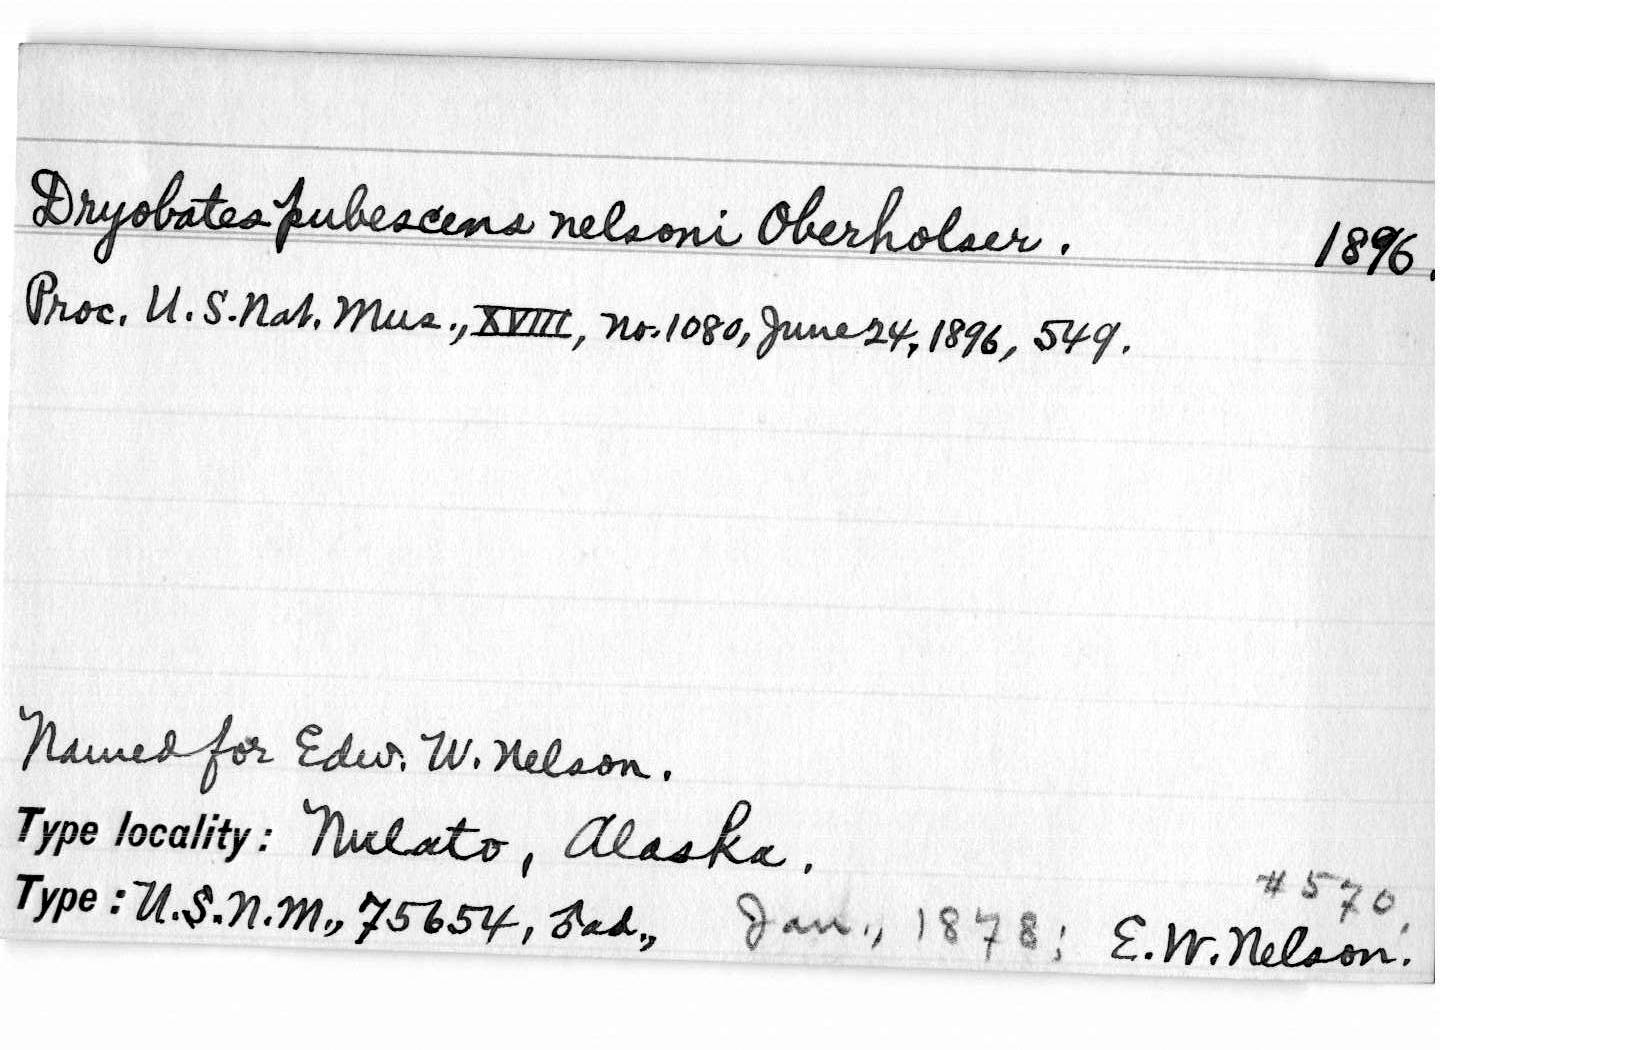 Dryobates pubescens nelsoni Oberholser. 1896.
Proc. U.S. Nat. Mus., XVIII, no. 1080, June 24, 1896, 549.
Named for Edw. W. Nelson.
Type locality: Nulato, Alaska.
#570.
Type: U.S.N.M., 75654, ♂ad., Jan., 1878; E.W. Nelson.